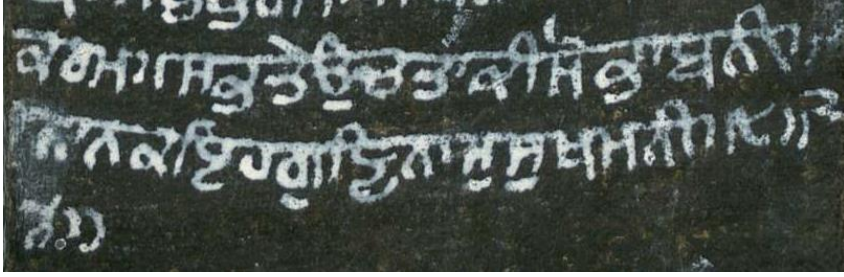 ਕਰਮ॥ਸਭਤੇਊਚਤਾਕੀਸੋਭਾਬਨੀ॥
ਨਾਨਕਇਹਗੁਣਿਨਾਮੁਸੁਖਮਨੀ॥੮॥੨
੪॥